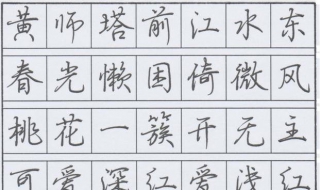 黄师塔前江水东
春光懒困倚微风
桃花一簇开无主
可爱深红爱浅红